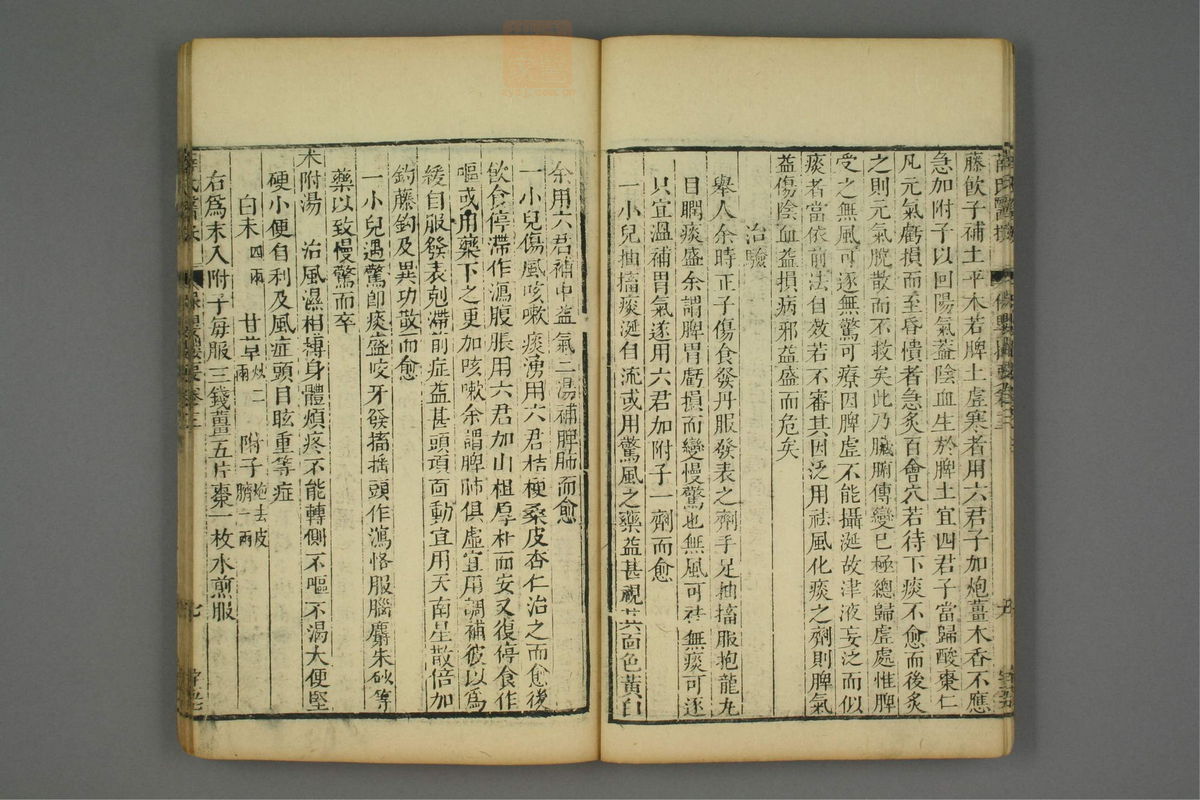 藤飲子補土平木若脾土虛寒者用六君子加炮薑木香不應
急加附子以回陽氣蓋陰血生於脾土宜四君子當歸酸棗仁
凡元氣虧損而至昏憒者急灸百會穴若待下痰不愈而後灸
之則元氣脫散而不救矣此乃臟腑傳變已極總歸虛處惟脾
受之無風可逐無驚可療因脾虛不能攝涎故津液妄泛而似
痰者當依前法自效若不審其因泛用祛風化痰之劑則脾氣
益傷陰血益損病邪益盛而危矣
治驗
舉人余時正子傷食發丹服發表之劑手足抽搐服抱龍丸
目瞤痰盛余謂脾胃虧損而變慢驚也無風可祛無痰可逐
只宜溫補胃氣遂用六君加附子一劑而愈
一小兒抽搐痰涎自流或用驚風之藥益甚視其面色黃白
余用六君補中益氣二湯補脾肺而愈
一小兒傷風咳嗽痰湧用六君桔梗桑皮杏仁治之而愈後
飲食停滯作瀉腹脹用六君加山楂厚朴而安又復停食作
嘔或用藥下之更加咳嗽余謂脾肺俱虛宜用調補彼以為
緩自服發表剋滯前症益甚頭項面動宜用天南星散倍加
鈎藤鈎及異功散而愈
一小兒遇驚卽痰盛咬牙發搐搖頭作瀉恪服腦麝朱砂等
藥以致慢驚而卒
朮附湯 治風濕相搏身體煩疼不能轉側不嘔不渴大便堅
硬小便自利及風症頭目眩重等症
白朮四兩 甘草炒二兩 附子炮去皮臍一兩
右為末入附子每服三錢薑五片棗一枚水煎服
七